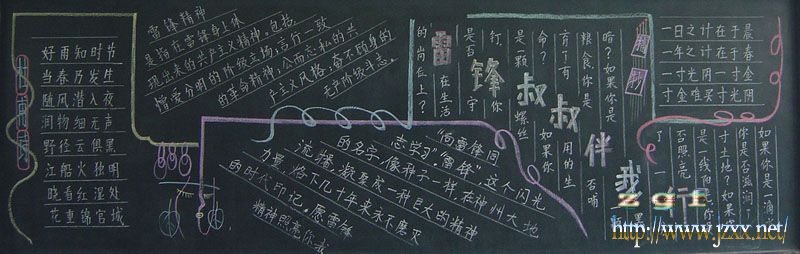 好雨知时节
当春乃发生
随风潜入夜
润物细无声
野径云俱黑
江船火独明
晓看红湿处
花重锦官城
雷锋精神
是指在雷锋身上体
现出来的共产主义精神，包括
憎爱分明的阶级立场，言行一致
的革命精神，公而忘私的共
产主义风格，奋不顾身的
无产阶级斗志。
"向雷锋同
志学习。"雷锋"，这个闪光
的名字，像种子一样，在神州大地
流播，凝聚成一种巨大的精神
力量，烙下几十年来永不磨灭
的时代印记。愿雷锋
精神照亮你我
雷锋叔叔伴我行
一日之计在于晨
一年之计在于春
一寸光阴一寸金
寸金难买寸光阴
如果你是一滴水
你是否滋润了
寸土地？如果你
是一线阳光你
否照亮
了一
黑
暗？如果你是
粮食，你是否哺
育了有用的生
命？如果你
是一颗螺丝
钉，你
是否 守
在生活
的岗位上？
zgr
http://www.jzxx.net/